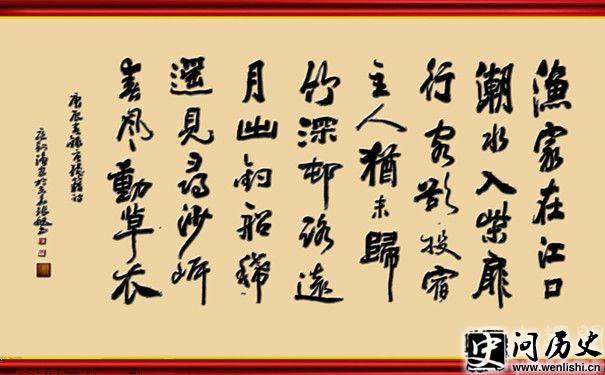 漁家在江口
潮水入柴扉
行客欲投宿
主人猶未歸
竹深邨路遠
月出釣船稀
遥見尋沙岸
春風動草衣
庚辰 録唐張籍詩
史问历史
www.wenlishi.cn